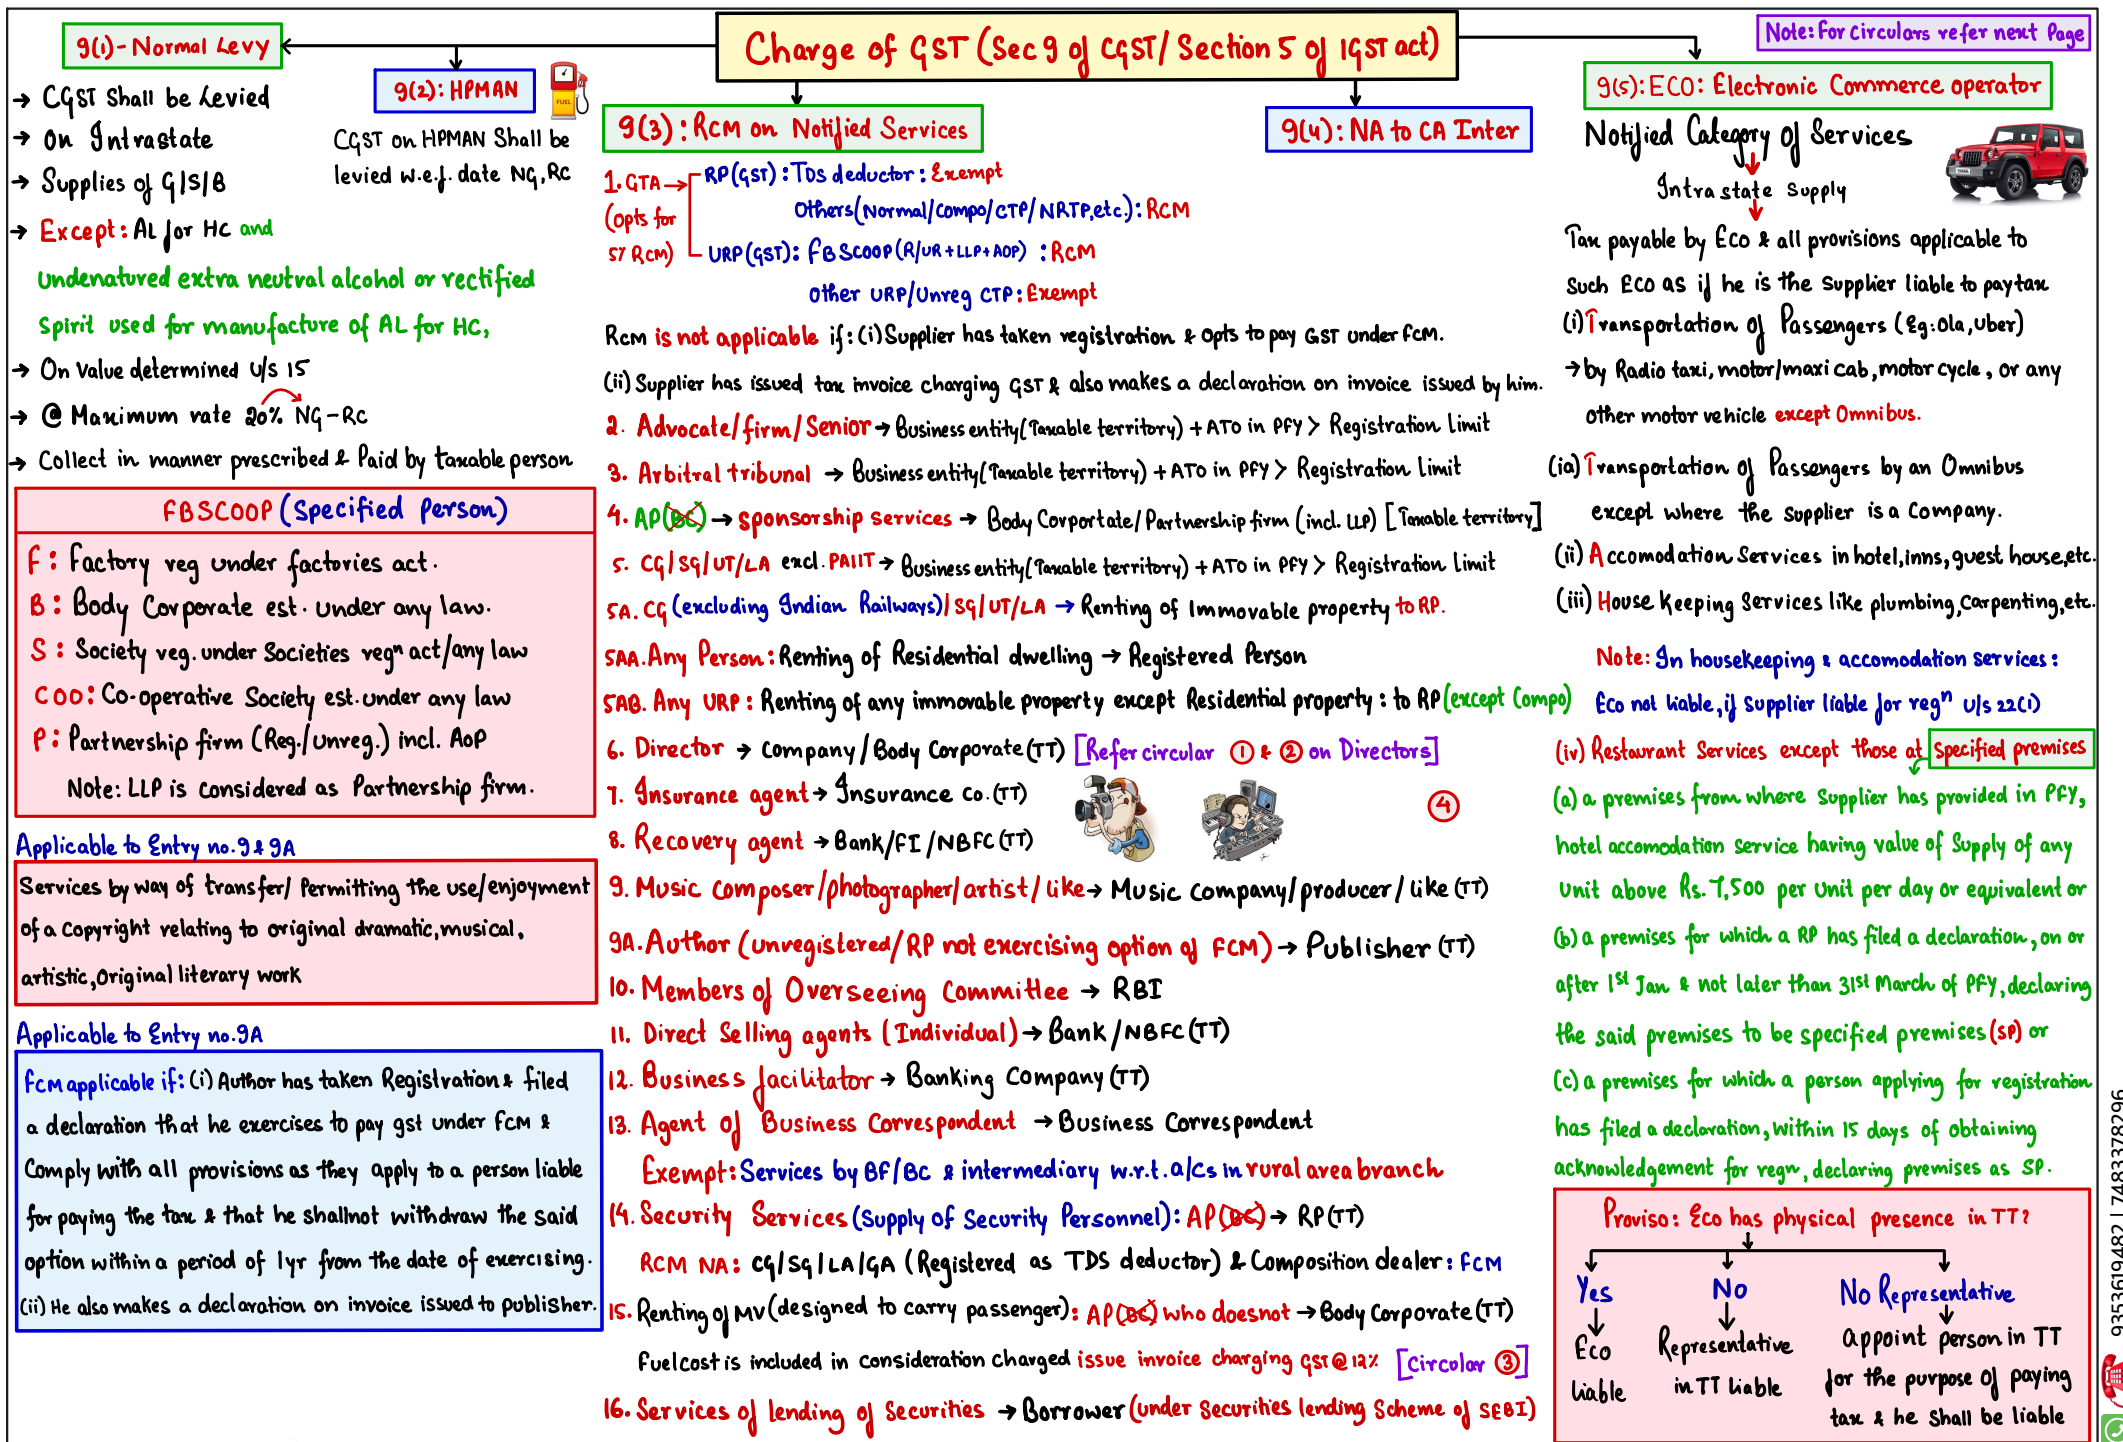 Charge of GST (Sec 9 of CGST/ Section 5 of IGST act)
Note: For Circulars refer next Page
9(1)-Normal Levy
→ CGST Shall be Levied
→ on Intrastate
→ Supplies of G/S/B
→ Except: AL for HC and
undenatured extra neutral alcohol or rectified
Spirit used for manufacture of AL for HC,
→ On Value determined U/s 15
→ @ Maximum rate 20% NG-RC
→ Collect in manner prescribed & Paid by taxable person
9(2): HPMAN
FUEL
CGST on HPMAN Shall be
levied w.e.f. date NG, RC
FBSCOOP (Specified Person)
F: Factory reg under factories act.
B: Body Corporate est. under any law.
S: Society reg. under Societies regn act/any law
COO: Co-operative Society est. under any law
P: Partnership firm (Reg./unreg.) incl. AOP
Note: LLP is considered as Partnership firm.
Applicable to Entry no. 9 & 9A
Services by way of transfer/ Permitting the use/enjoyment
of a Copyright relating to original dramatic, musical,
artistic, Original literary work
Applicable to Entry no. 9A
FCM applicable if: (i) Author has taken Registration & filed
a declaration that he exercises to pay gst under FCM &
Comply with all provisions as they apply to a person liable
for paying the tax & that he shall not withdraw the said
option within a period of 1yr from the date of exercising.
(ii) He also makes a declaration on invoice issued to publisher.
9(3): RCM on Notified Services
1. GTA → RP (GST): TDS deductor: Exempt
(opts for Others (Normal/Compo/CTP/NRTP, etc.): RCM
5% RCM) URP (GST): FBSCOOP (R/UR + LLP + AOP) : RCM
Other URP/Unreg CTP: Exempt
Rcm is not applicable if: (i) Supplier has taken registration & opts to pay GST under FCM.
(ii) Supplier has issued tax invoice charging GST & also makes a declaration on invoice issued by him.
2. Advocate/firm/Senior → Business entity (Taxable territory) + ATO in PFY > Registration Limit
3. Arbitral tribunal → Business entity (Taxable territory) + ATO in PFY > Registration Limit
4. AP (BC) → sponsorship services → Body Corportate/Partnership firm (incl. LLP) [Taxable territory]
5. CG/SG/UT/LA excl. PAIIT → Business entity (Taxable territory) + ATO in PFY > Registration Limit
5A. CG (excluding Indian Railways)/SG/UT/LA → Renting of Immovable property to RP.
5AA. Any Person: Renting of Residential dwelling → Registered Person
5AB. Any URP: Renting of any immovable property except Residential property: to RP (except Compo)
6. Director → Company/Body Corporate (TT) [Refer circular 1 & 2 on Directors]
7. Insurance agent → Insurance Co. (TT)
4
8. Recovery agent → Bank/FI/NBFC (TT)
9. Music composer/photographer/artist/like → Music company/producer/like (TT)
9A. Author (unregistered/RP not exercising option of FCM) → Publisher (TT)
10. Members of Overseeing Committee → RBI
11. Direct Selling agents (Individual) → Bank/NBFC (TT)
12. Business facilitator → Banking Company (TT)
13. Agent of Business Correspondent → Business Correspondent
Exempt: Services by BF/BC & intermediary w.r.t. a/cs in rural area branch
14. Security Services (Supply of Security Personnel): AP (BC) → RP (TT)
RCM NA: CG/SG/LA/GA (Registered as TDS deductor) & Composition dealer: FCM
15. Renting of MV (designed to carry passenger): AP (BC) who doesnot → Body Corporate (TT)
Fuel cost is included in consideration charged issue invoice charging GST @ 12% [Circular 3]
16. Services of lending of Securities → Borrower (under Securities lending Scheme of SEBI)
9(4): NA to CA Inter
9(5): ECO: Electronic Commerce operator
Notified Category of Services
Intra state Supply
Tax payable by ECO & all provisions applicable to
such ECO as if he is the Supplier liable to pay tax
(i) Transportation of Passengers (Eg: Ola, Uber)
→ by Radio taxi, motor/maxi cab, motor cycle, or any
other motor vehicle except Omnibus.
(ia) Transportation of Passengers by an Omnibus
except where the Supplier is a Company.
(ii) Accomodation Services in hotel, inns, guest house, etc.
(iii) House Keeping Services like plumbing, Carpenting, etc.
Note: In housekeeping & accomodation services:
Eco not liable, if Supplier liable for regn U/s 22(1)
(iv) Restaurant Services except those at Specified premises
(a) a premises from where Supplier has provided in PFY,
hotel accomodation service having value of Supply of any
unit above Rs. 7,500 per unit per day or equivalent or
(b) a premises for which a RP has filed a declaration, on or
after 1st Jan & not later than 31st March of PFY, declaring
the said premises to be specified premises (SP) or
(c) a premises for which a person applying for registration
has filed a declaration, within 15 days of obtaining
acknowledgement for regn, declaring premises as SP.
Proviso: Eco has physical presence in TT?
Yes
Eco
liable
No
Representative
in TT liable
No Representative
appoint person in TT
for the purpose of paying
tax & he shall be liable
9353619482 | 7483378296